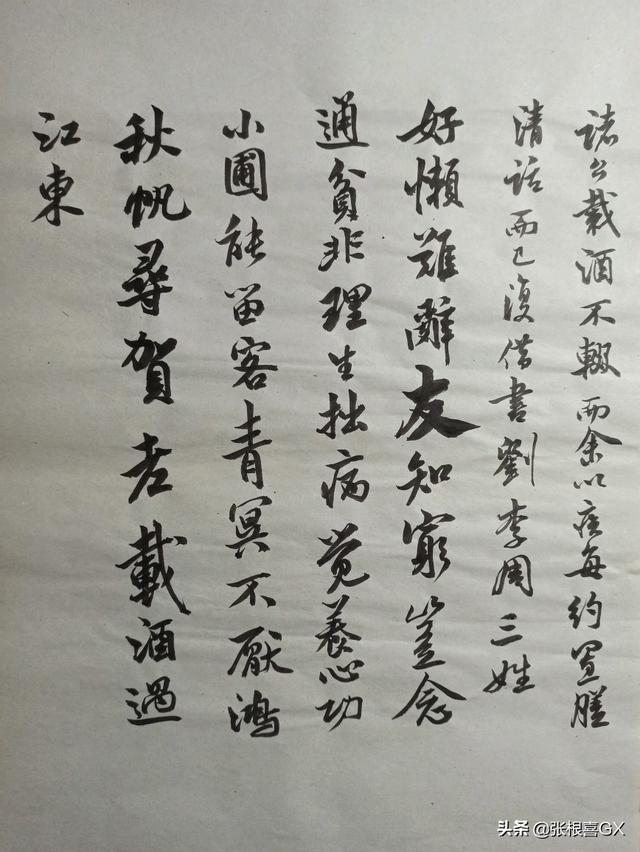 諸公載酒不輟而余以疾每約置膳
清話而已復借書劉李周三姓
好懶難辭友知窮豈念
通貧非理生拙病觉養心功
小圃能留客青冥不厭鴻
秋帆尋賀老載酒過
江東
头条 @张根喜GX